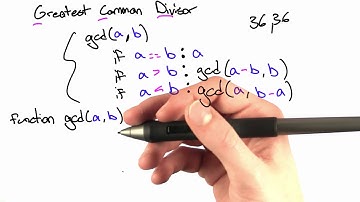 Greatest Common Divisor
36,36
gcd(a,b)
if a == b : a
if a > b : gcd(a-b, b)
if a < b : gcd(a, b-a)
function gcd(a,b)